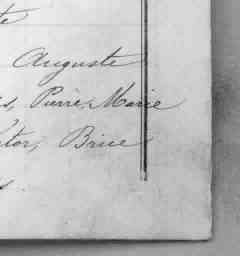 te
Auguste
s, Pierre, Marie
tor, Brice
s